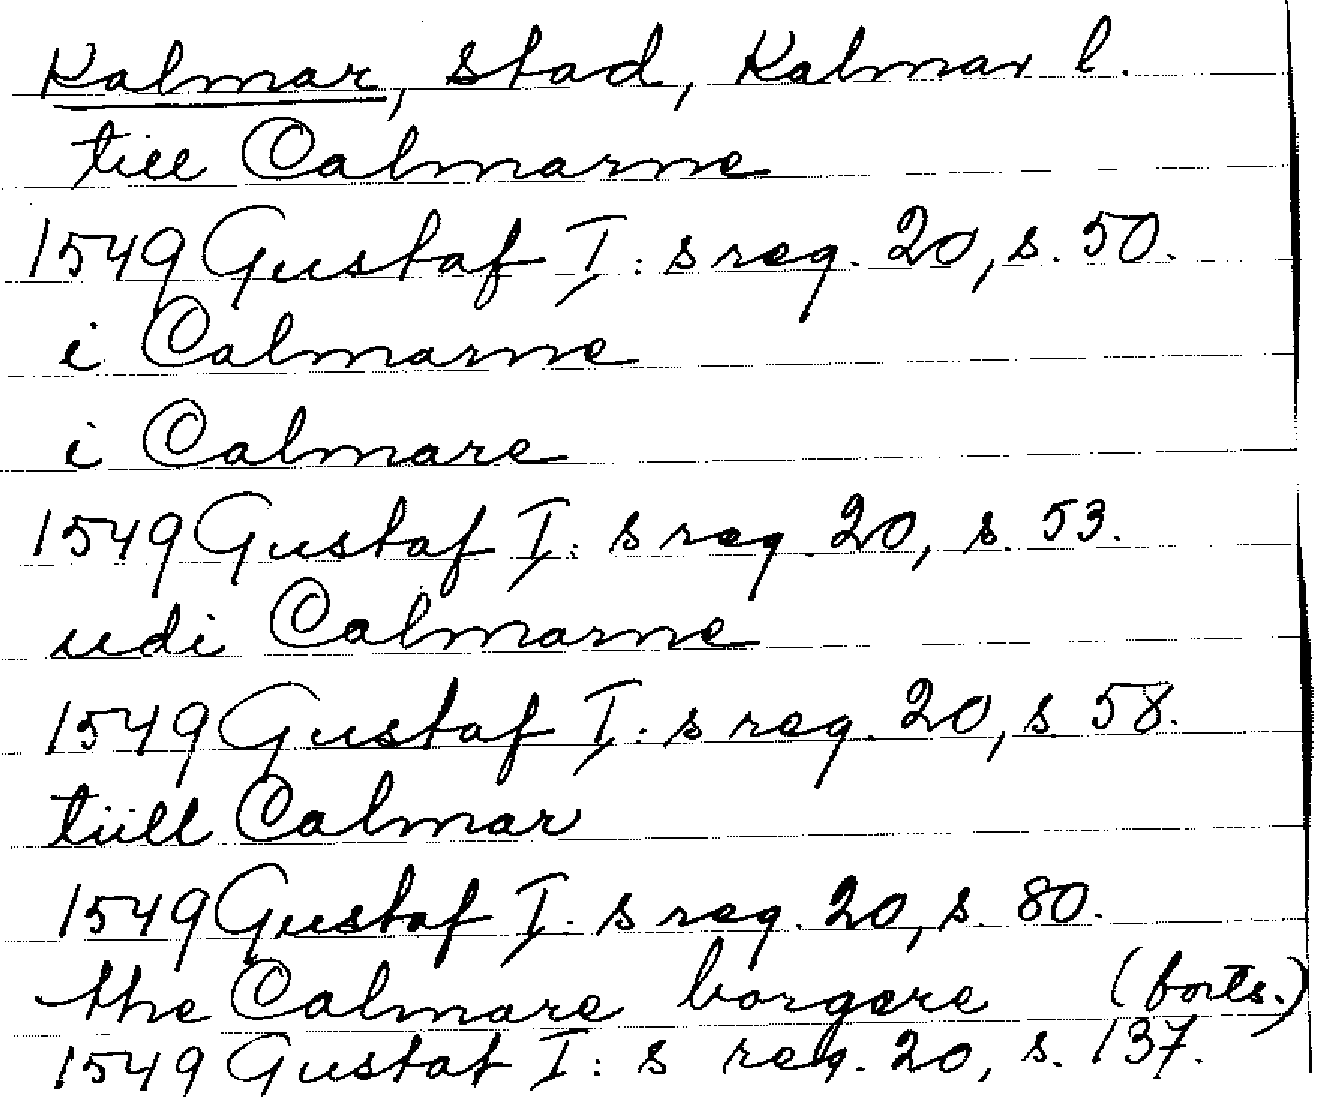 Kalmar, stad, Kalmar l.
till Calmarne
1549 Gustaf I: s reg. 20, s. 50.
i Calmarne
i Calmare
1549 Gustaf I: s reg. 20, s. 53.
udi Calmarne
1549 Gustaf I: s reg. 20, s. 58.
tiill Calmar
1549 Gustaf I: s reg. 20, s. 80.
the Calmare borgere (forts.)
1549 Gustaf I: s reg. 20, s. 137.